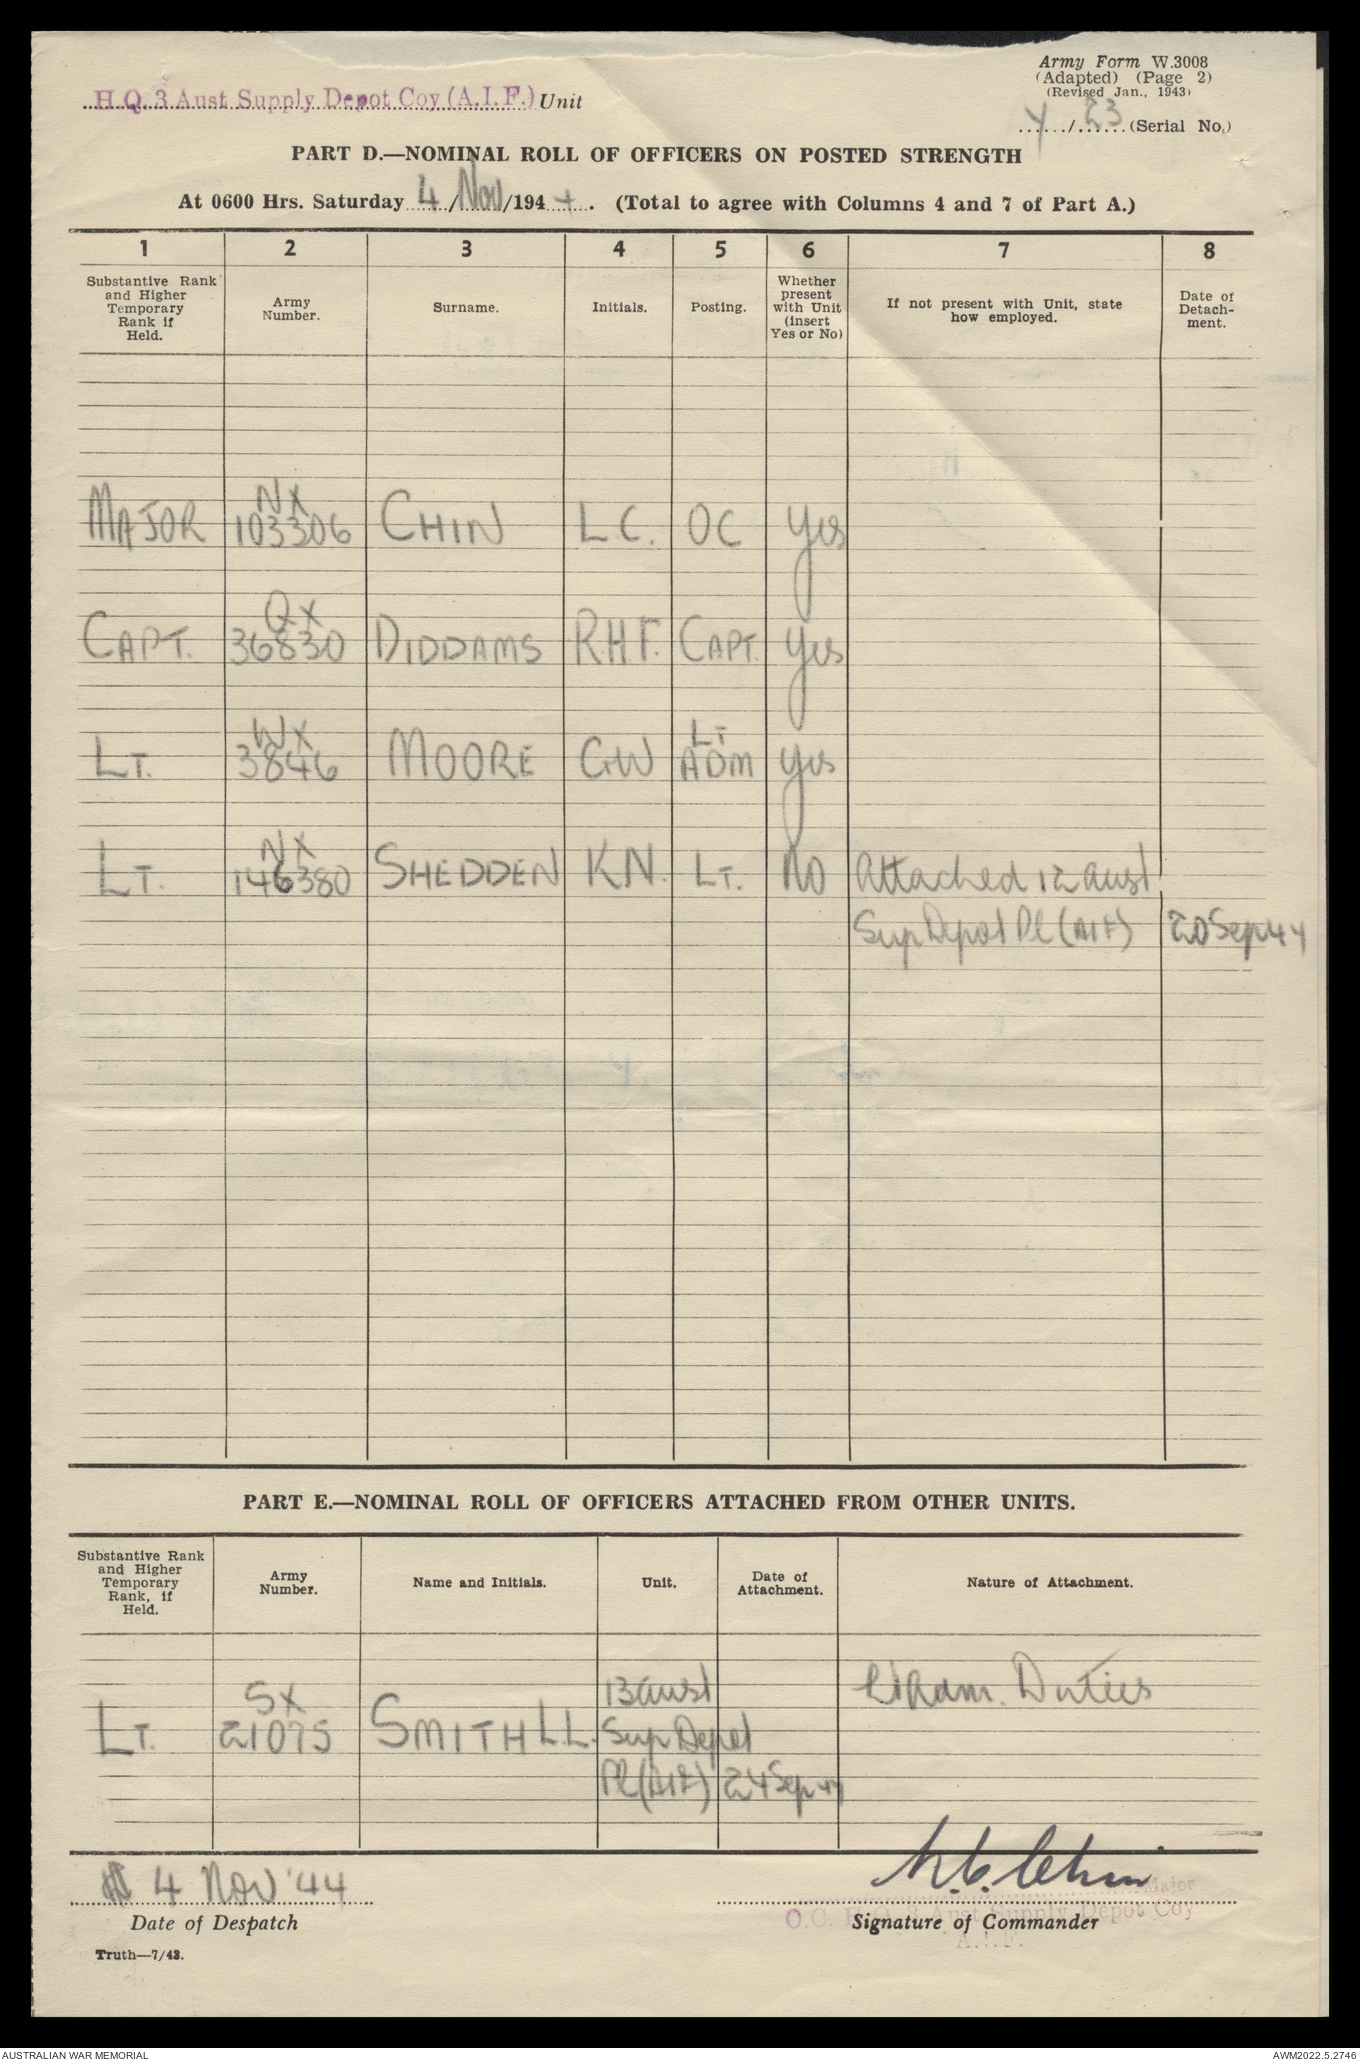 Army Form W.3008
(Adapted) (Page 2)
(Revised Jan., 1943)
H.Q. 3 Aust Supply Depot Coy (A.I.F.) Unit
Y/23 (Serial No.)
PART D.—NOMINAL ROLL OF OFFICERS ON POSTED STRENGTH
At 0600 Hrs. Saturday 4/Nov/1944. (Total to agree with Columns 4 and 7 of Part A.)
1 2 3 4 5 6 7 8
Substantive Rank and Higher Temporary Rank if Held.
Army Number.
Surname.
Initials.
Posting.
Whether present with Unit (insert Yes or No)
If not present with Unit, state how employed.
Date of Detach-ment.
MAJOR NX 103306 CHIN L.C. OC Yes
CAPT. QX 36830 DIDDAMS R.H.F. CAPT. Yes
LT. WX 3846 MOORE GW LT ADM Yes
LT. NX 146380 SHEDDEN K.N. LT. No Attached 12 Aust
Sup Depot Pl (AIF) 20 Sep 44
PART E.—NOMINAL ROLL OF OFFICERS ATTACHED FROM OTHER UNITS.
Substantive Rank and Higher Temporary Rank, if Held.
Army Number.
Name and Initials.
Unit.
Date of Attachment.
Nature of Attachment.
LT. SX 21075 SMITH L.L. 13 Aust
Sup Depot
Pl (AIF) 24 Sep 44
Adm. Duties
4 Nov '44
L. C. Chin
Major
Date of Despatch
Signature of Commander
O.C. H.Q. 3 Aust Supply Depot Coy
A.I.F.
Truth—7/43.
AUSTRALIAN WAR MEMORIAL
AWM2022.5.2746